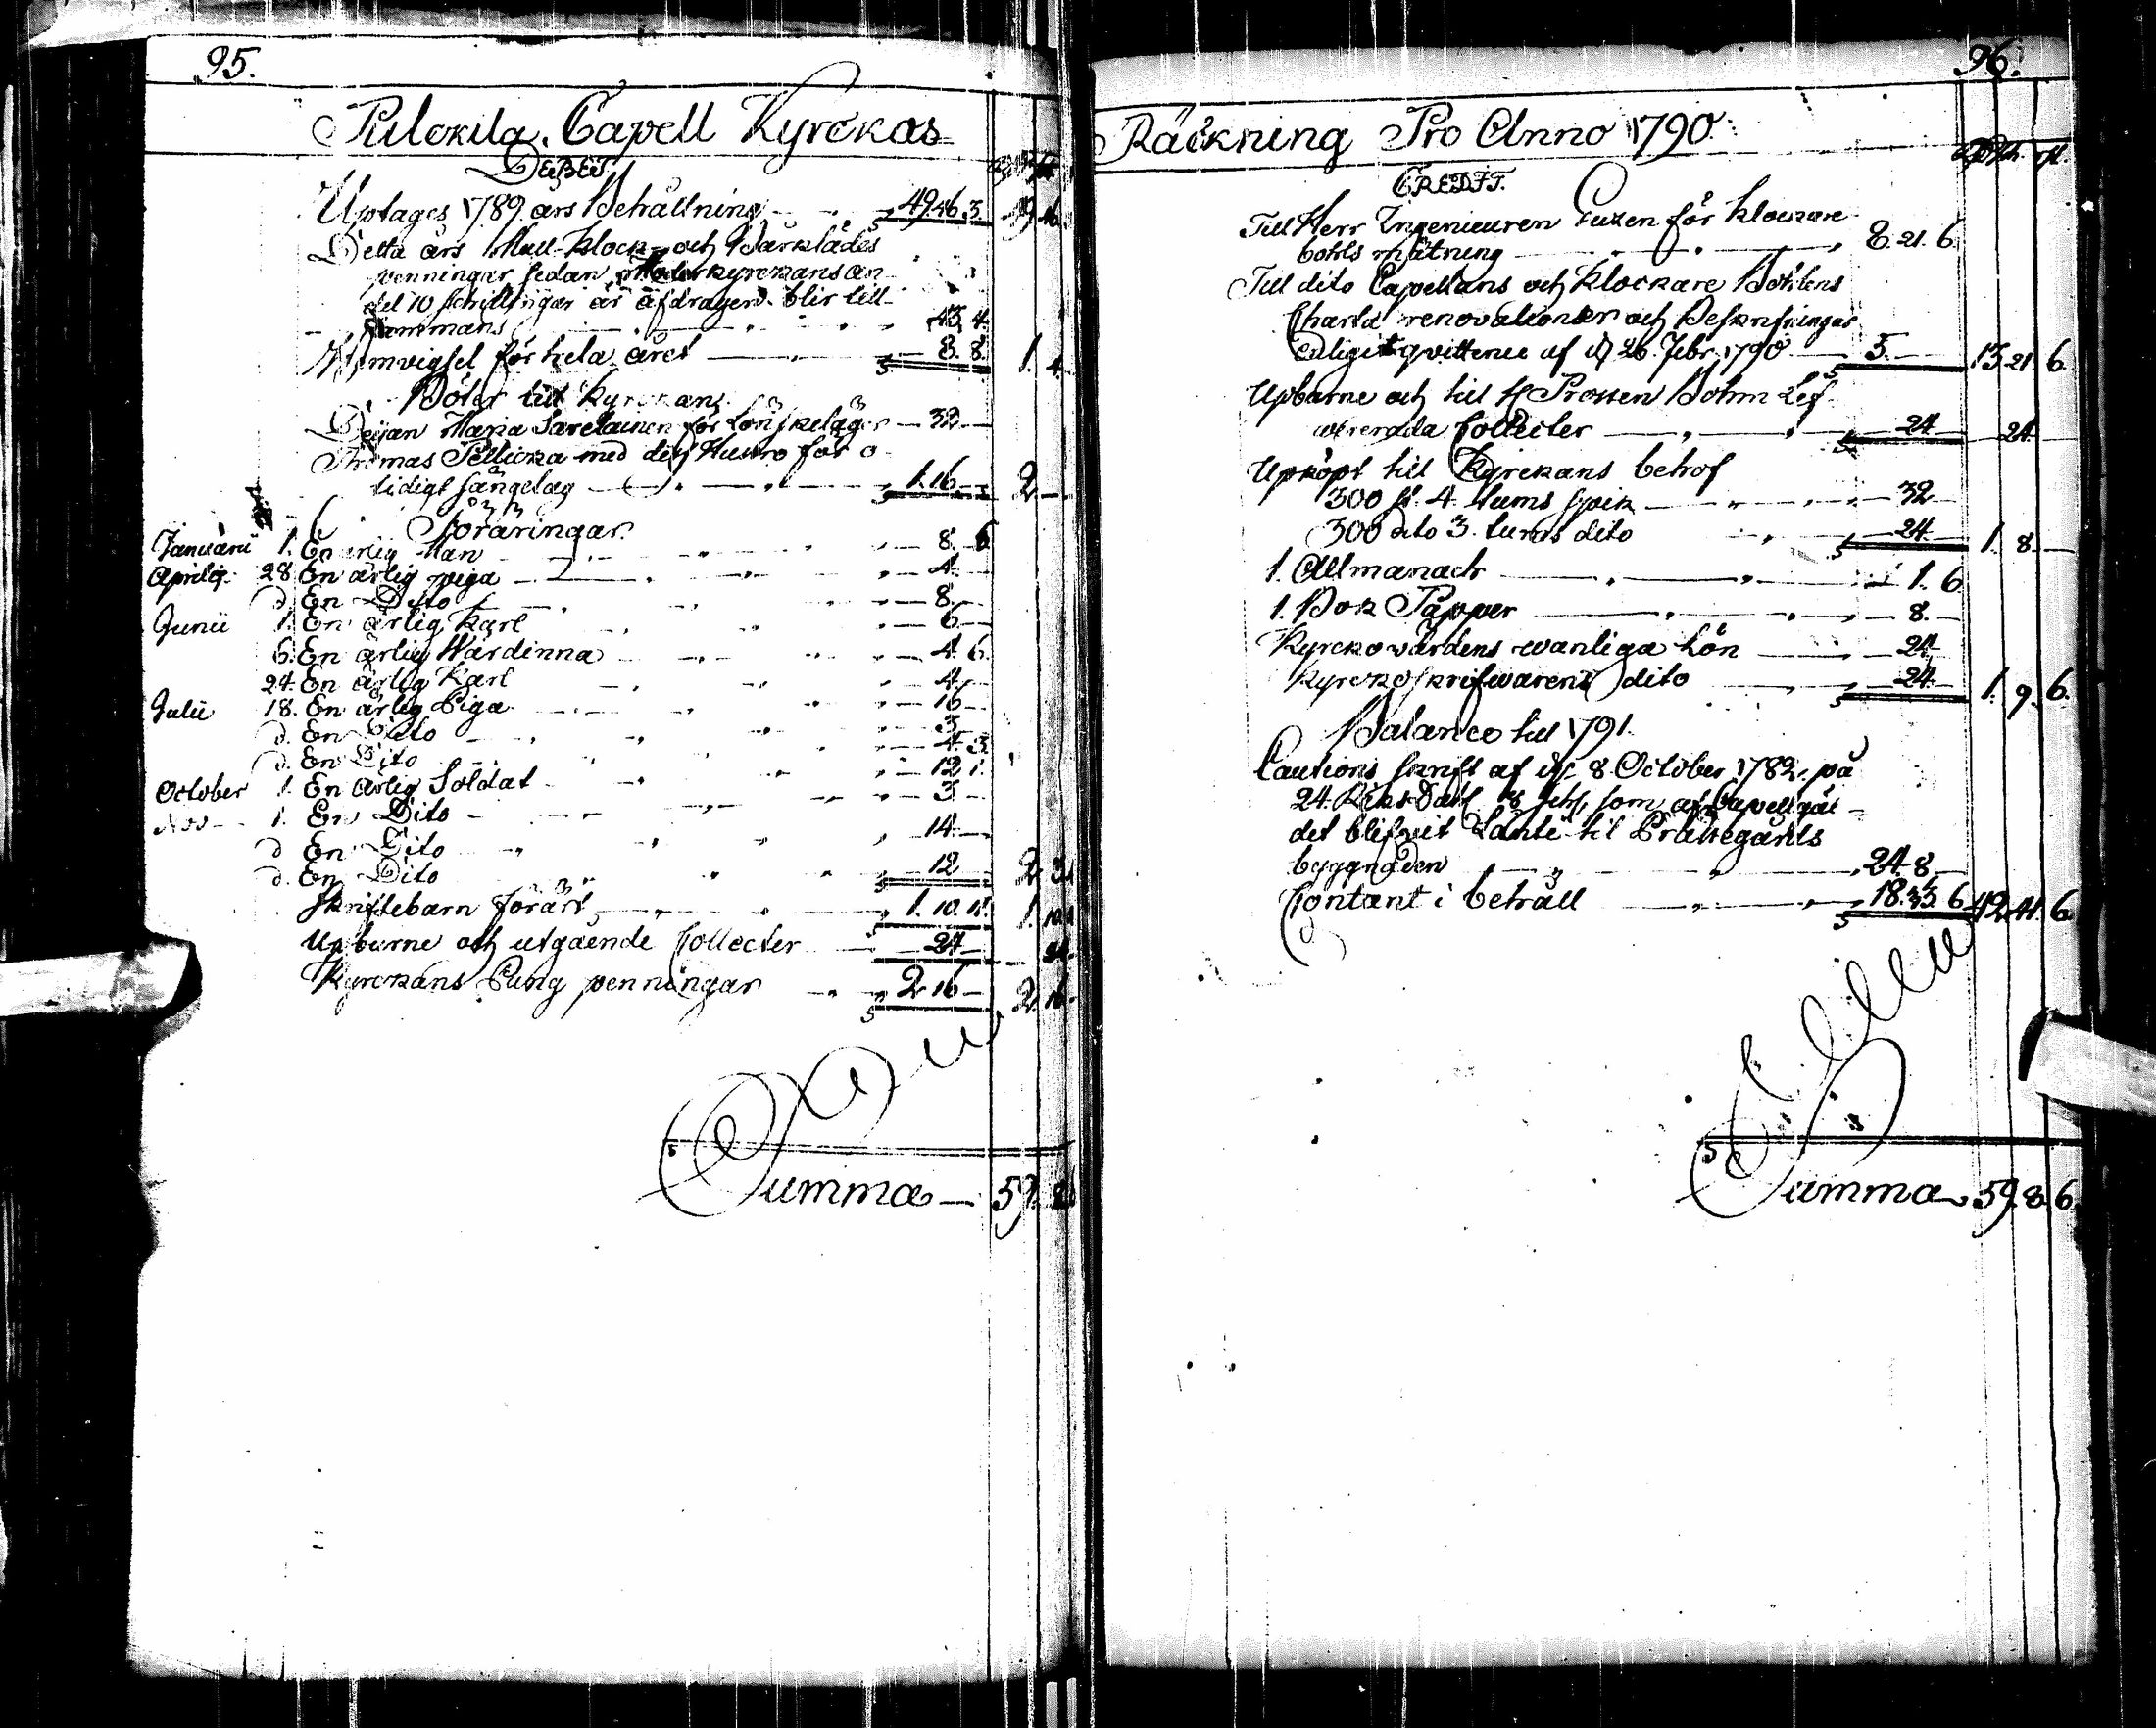 95.
Pulckila Capell Kyrckas
DEBET.
Uptages 1789 års Behållning 49. 46. 3. 49 46
Detta års Mull-Klock- och Bårklädes
penningar sedan Moderkyrckans an
del 10 schillingar är afdragen blir till-
sammans 43. 4.
Hemvigsel för hela året 3. 8. 1. 4
Böter till Kyrckan
Deijan Maria Savelainen för Lönskeläger 32
Thomas Pellicka med dess Hustro för o
tidigt sängelag 1. 16 2
Föräringar
Januarii 1. En ärlig Man 8. 6
Aprilis 28 En ärlig piga 4
d. En Dito 8.
Junii 1. En ärlig Karl 6
6. En ärlig Wärdinna 4. 6.
24. En ärlig Karl 4
Julii 18. En ärlig Piga 16
d. En Dito 3
d. En Dito 4. 3.
October 1. En ärlig Soldat 12 1.
Nov 1. En Dito 3
d En Dito 14
d. En Dito 12 2 31
Skriftebarn förärt 1. 10. 11. 1. 10
Upburne och utgående Collecter 24 24
Kyrckans Pung penningar 2 16 2 16
Summa 59. 8
96.
Räckning Pro Anno 1790
CREDIT.
Till Herr Ingenieuren Cuzen för Klockare
bohls mätning 8. 21. 6
Till dito Capellans och Klockare Bohlens
Charta renovationer och Beskrifningar
enligit qvittence af d 26. Febr. 1790 5. 13 21. 6.
Upburne och till H Prosten Bohm Lef
wererada Collecter 24 24
Upköpt till Kyrckans behof
300 st. 4 tums spik 32
300 dito 3. tums dito 24 1. 8.
1. Allmanach 1. 6
1. Bok Papper 8.
Kyrckovärdens wanliga Lön 24
Kyrckoskrifwarens dito 24 1. 9. 6.
Balance till 1791.
Cautions skrift af d. 8. October 1782. på
24. Riks Dal 8 sch, som af Capellgäl
det blifvit Länte til Prästegårds
byggnaden 24. 8
Contant i behåll 18. 35 6 42. 41. 6
Summa 59. 8. 6